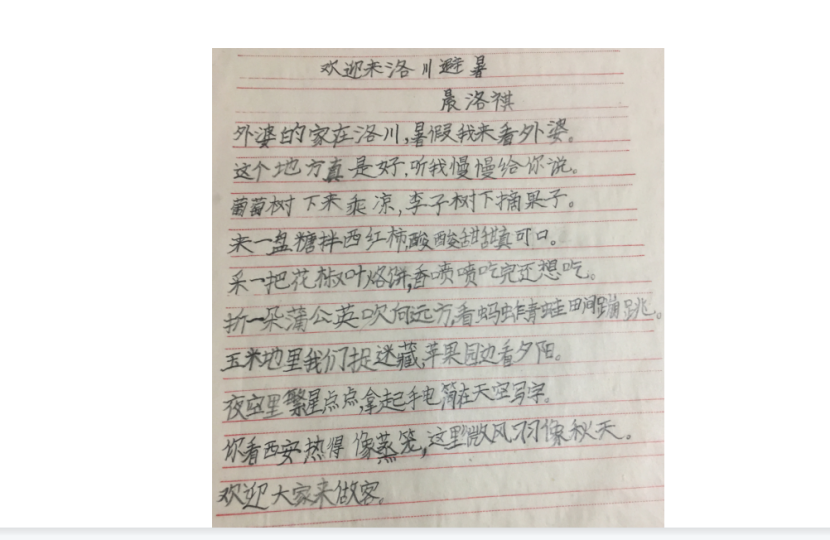 欢迎来洛川避暑
晨洛祺
外婆的家在洛川,暑假我来看外婆。
这个地方真是好,听我慢慢给你说。
葡萄树下来乘凉,李子树下摘果子。
来一盘糖拌西红柿,酸酸甜甜真可口。
采一把花椒叶烙饼,香喷喷吃完还想吃。
折一朵蒲公英吹向远方,看蚂蚱青蛙田间蹦跳。
玉米地里我们捉迷藏,苹果园边看夕阳。
夜空里繁星点点,拿起手电筒在天空写字。
你看西安热得像蒸笼,这里微风习习像秋天。
欢迎大家来做客。